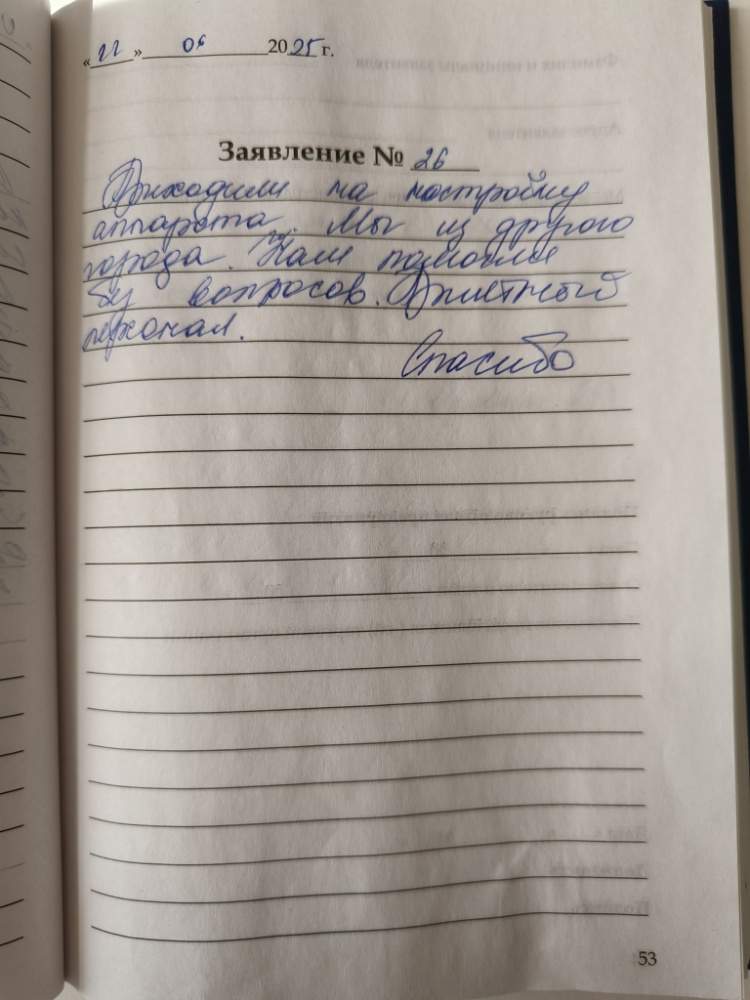 «22» 06 2025 г.
Заявление № 26
Приходили на настройку
аппарата. Мы из другого
города. Нам помогли
бз вопросов. Приятный
персонал.
Спасибо
53